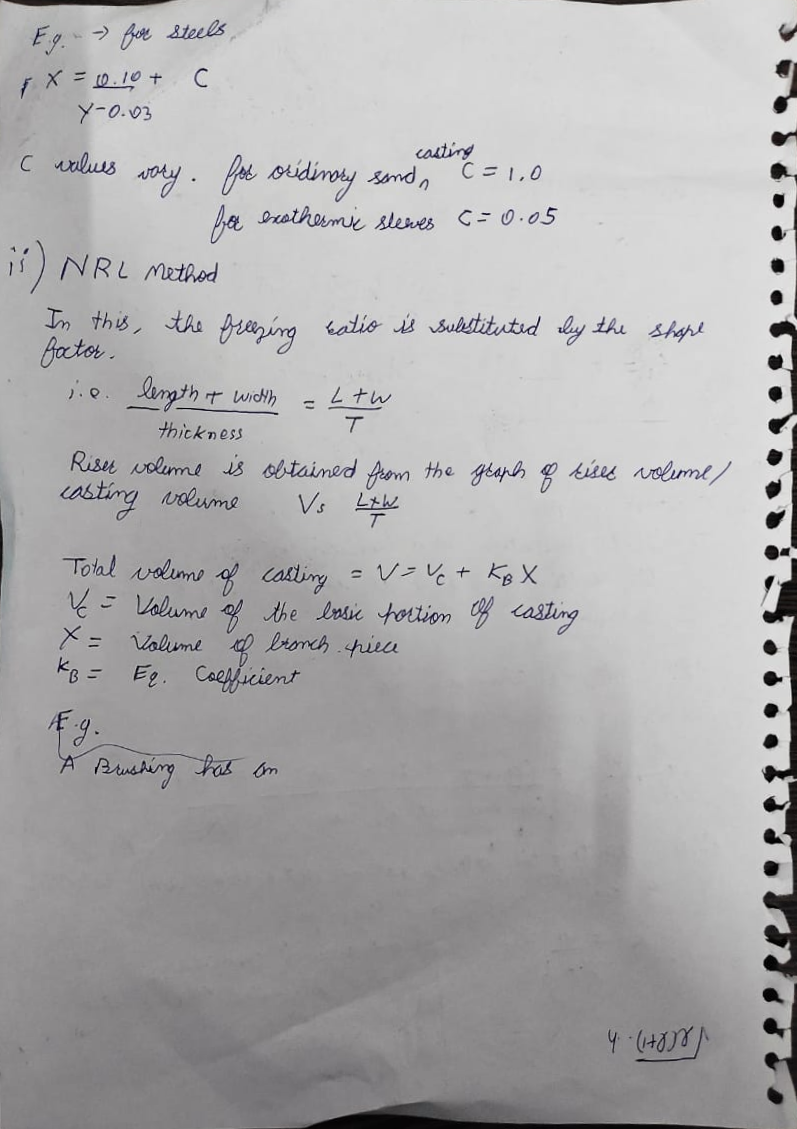 E.g. → for steels
X = 0.10 + C
Y-0.03
casting
C values vary. for oridinary sand, C = 1.0
for exothermic sleeves C = 0.05
ii) NRL Method
In this, the freezing ratio is substituted by the shape
factor.
i.e. length + width = L+W
thickness T
Riser volume is obtained from the graph of riser volume/
casting volume Vs L+W
T
Total volume of casting = V = Vc + KB X
Vc = Volume of the basic portion of casting
X = Volume of branch piece
KB = Eq. Coefficient
E.g.
A Brushing has an